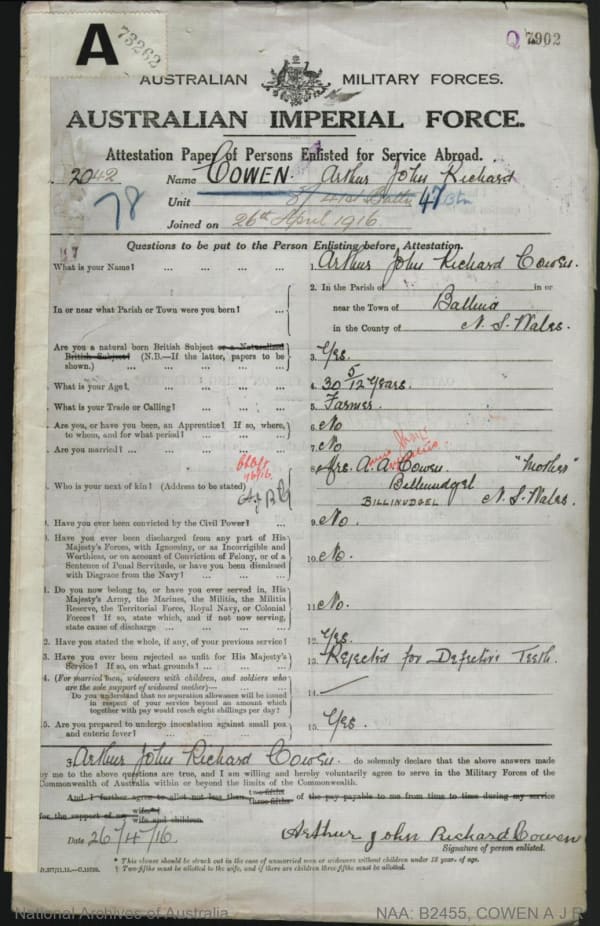 A 73262
Q 7902
AUSTRALIAN MILITARY FORCES.
AUSTRALIAN IMPERIAL FORCE.
Attestation Paper of Persons Enlisted for Service Abroad.
2042 Name COWEN. Arthur John Richard
78 Unit 41st Battn 47
Joined on 26th April 1916.
Questions to be put to the Person Enlisting before Attestation.
What is your Name? ... ... ... ... 1. Arthur John Richard Cowen.
2. In the Parish of in or
In or near what Parish or Town were you born? ... near the Town of Ballina
in the County of N. S. Wales.
Are you a natural born British Subject or a Naturalized
British Subject? (N.B.—If the latter, papers to be 3. Yes.
shown.) ... ... ... ...
What is your Age? ... ... ... ... 4. 30 5/12 Years.
What is your Trade or Calling? ... ... ... 5. Farmer.
Are you, or have you been, an Apprentice? If so, where, 6. No
to whom, and for what period? ... ... ...
Are you married? ... ... ... ... 7. No
8. Mrs. A. A. Cowen. "Mother"
Who is your next of kin? (Address to be stated) Billinudgel
BILLINUDGEL N. S. Wales.
9. Have you ever been convicted by the Civil Power? ... 9. No.
Have you ever been discharged from any part of His
Majesty's Forces, with Ignominy, or as Incorrigible and
Worthless, or on account of Conviction of Felony, or of a 10. No.
Sentence of Penal Servitude, or have you been dismissed
with Disgrace from the Navy? ... ... ...
1. Do you now belong to, or have you ever served in, His
Majesty's Army, the Marines, the Militia, the Militia
Reserve, the Territorial Force, Royal Navy, or Colonial 11. No.
Forces? If so, state which, and if not now serving,
state cause of discharge ... ... ... ...
2. Have you stated the whole, if any, of your previous service? 12. Yes.
3. Have you ever been rejected as unfit for His Majesty's 13. Rejected for Defective Teeth.
Service? If so, on what grounds? ... ... ...
4. (For married men, widowers with children, and soldiers who
are the sole support of widowed mother)—
Do you understand that no separation allowance will be issued 14. —
in respect of your service beyond an amount which
together with pay would reach eight shillings per day?
5. Are you prepared to undergo inoculation against small pox 15. Yes.
and enteric fever? ... ... ... ...
3. Arthur John Richard Cowen. do solemnly declare that the above answers made
by me to the above questions are true, and I am willing and hereby voluntarily agree to serve in the Military Forces of the
Commonwealth of Australia within or beyond the limits of the Commonwealth.
And I further agree to allot not less than two-fifths three-fifths of the pay payable to me from time to time during my service
for the support of my wife wife and children.
Date 26/4/16. Arthur John Richard Cowen
Signature of person enlisted.
* This clause should be struck out in the case of unmarried men or widowers without children under 18 years of age.
† Two-fifths must be allotted to the wife, and if there are children three-fifths must be allotted.
National Archives of Australia NAA: B2455, COWEN A J R